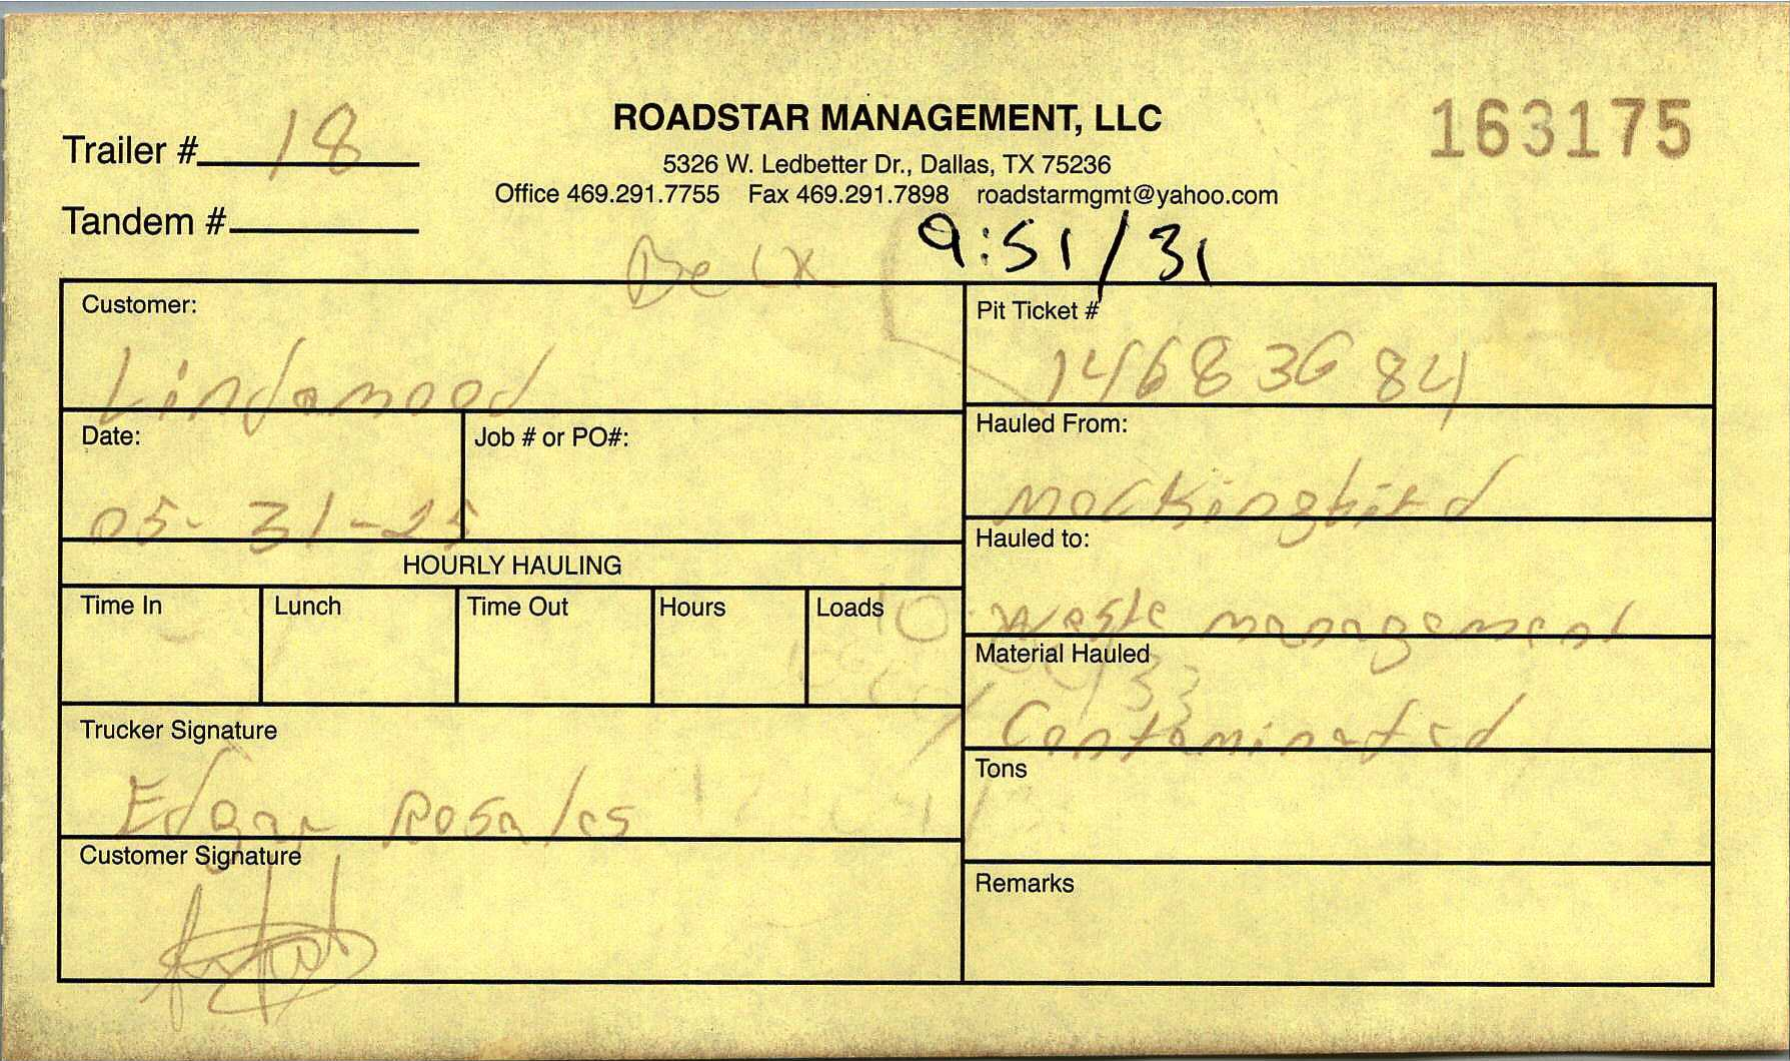 ROADSTAR MANAGEMENT, LLC
163175
Trailer # 18
5326 W. Ledbetter Dr., Dallas, TX 75236
Office 469.291.7755 Fax 469.291.7898 roadstarmgmt@yahoo.com
Tandem #
9:51/31
Customer:
Lindamood
Pit Ticket #
14683684
Date:
05-31-25
Job # or PO#:
Hauled From:
Mockingbird
HOURLY HAULING
Hauled to:
Waste management
Time In
Lunch
Time Out
Hours
Loads
Material Hauled
Contaminated
Trucker Signature
Edgar Rosales
Tons
Customer Signature
Remarks